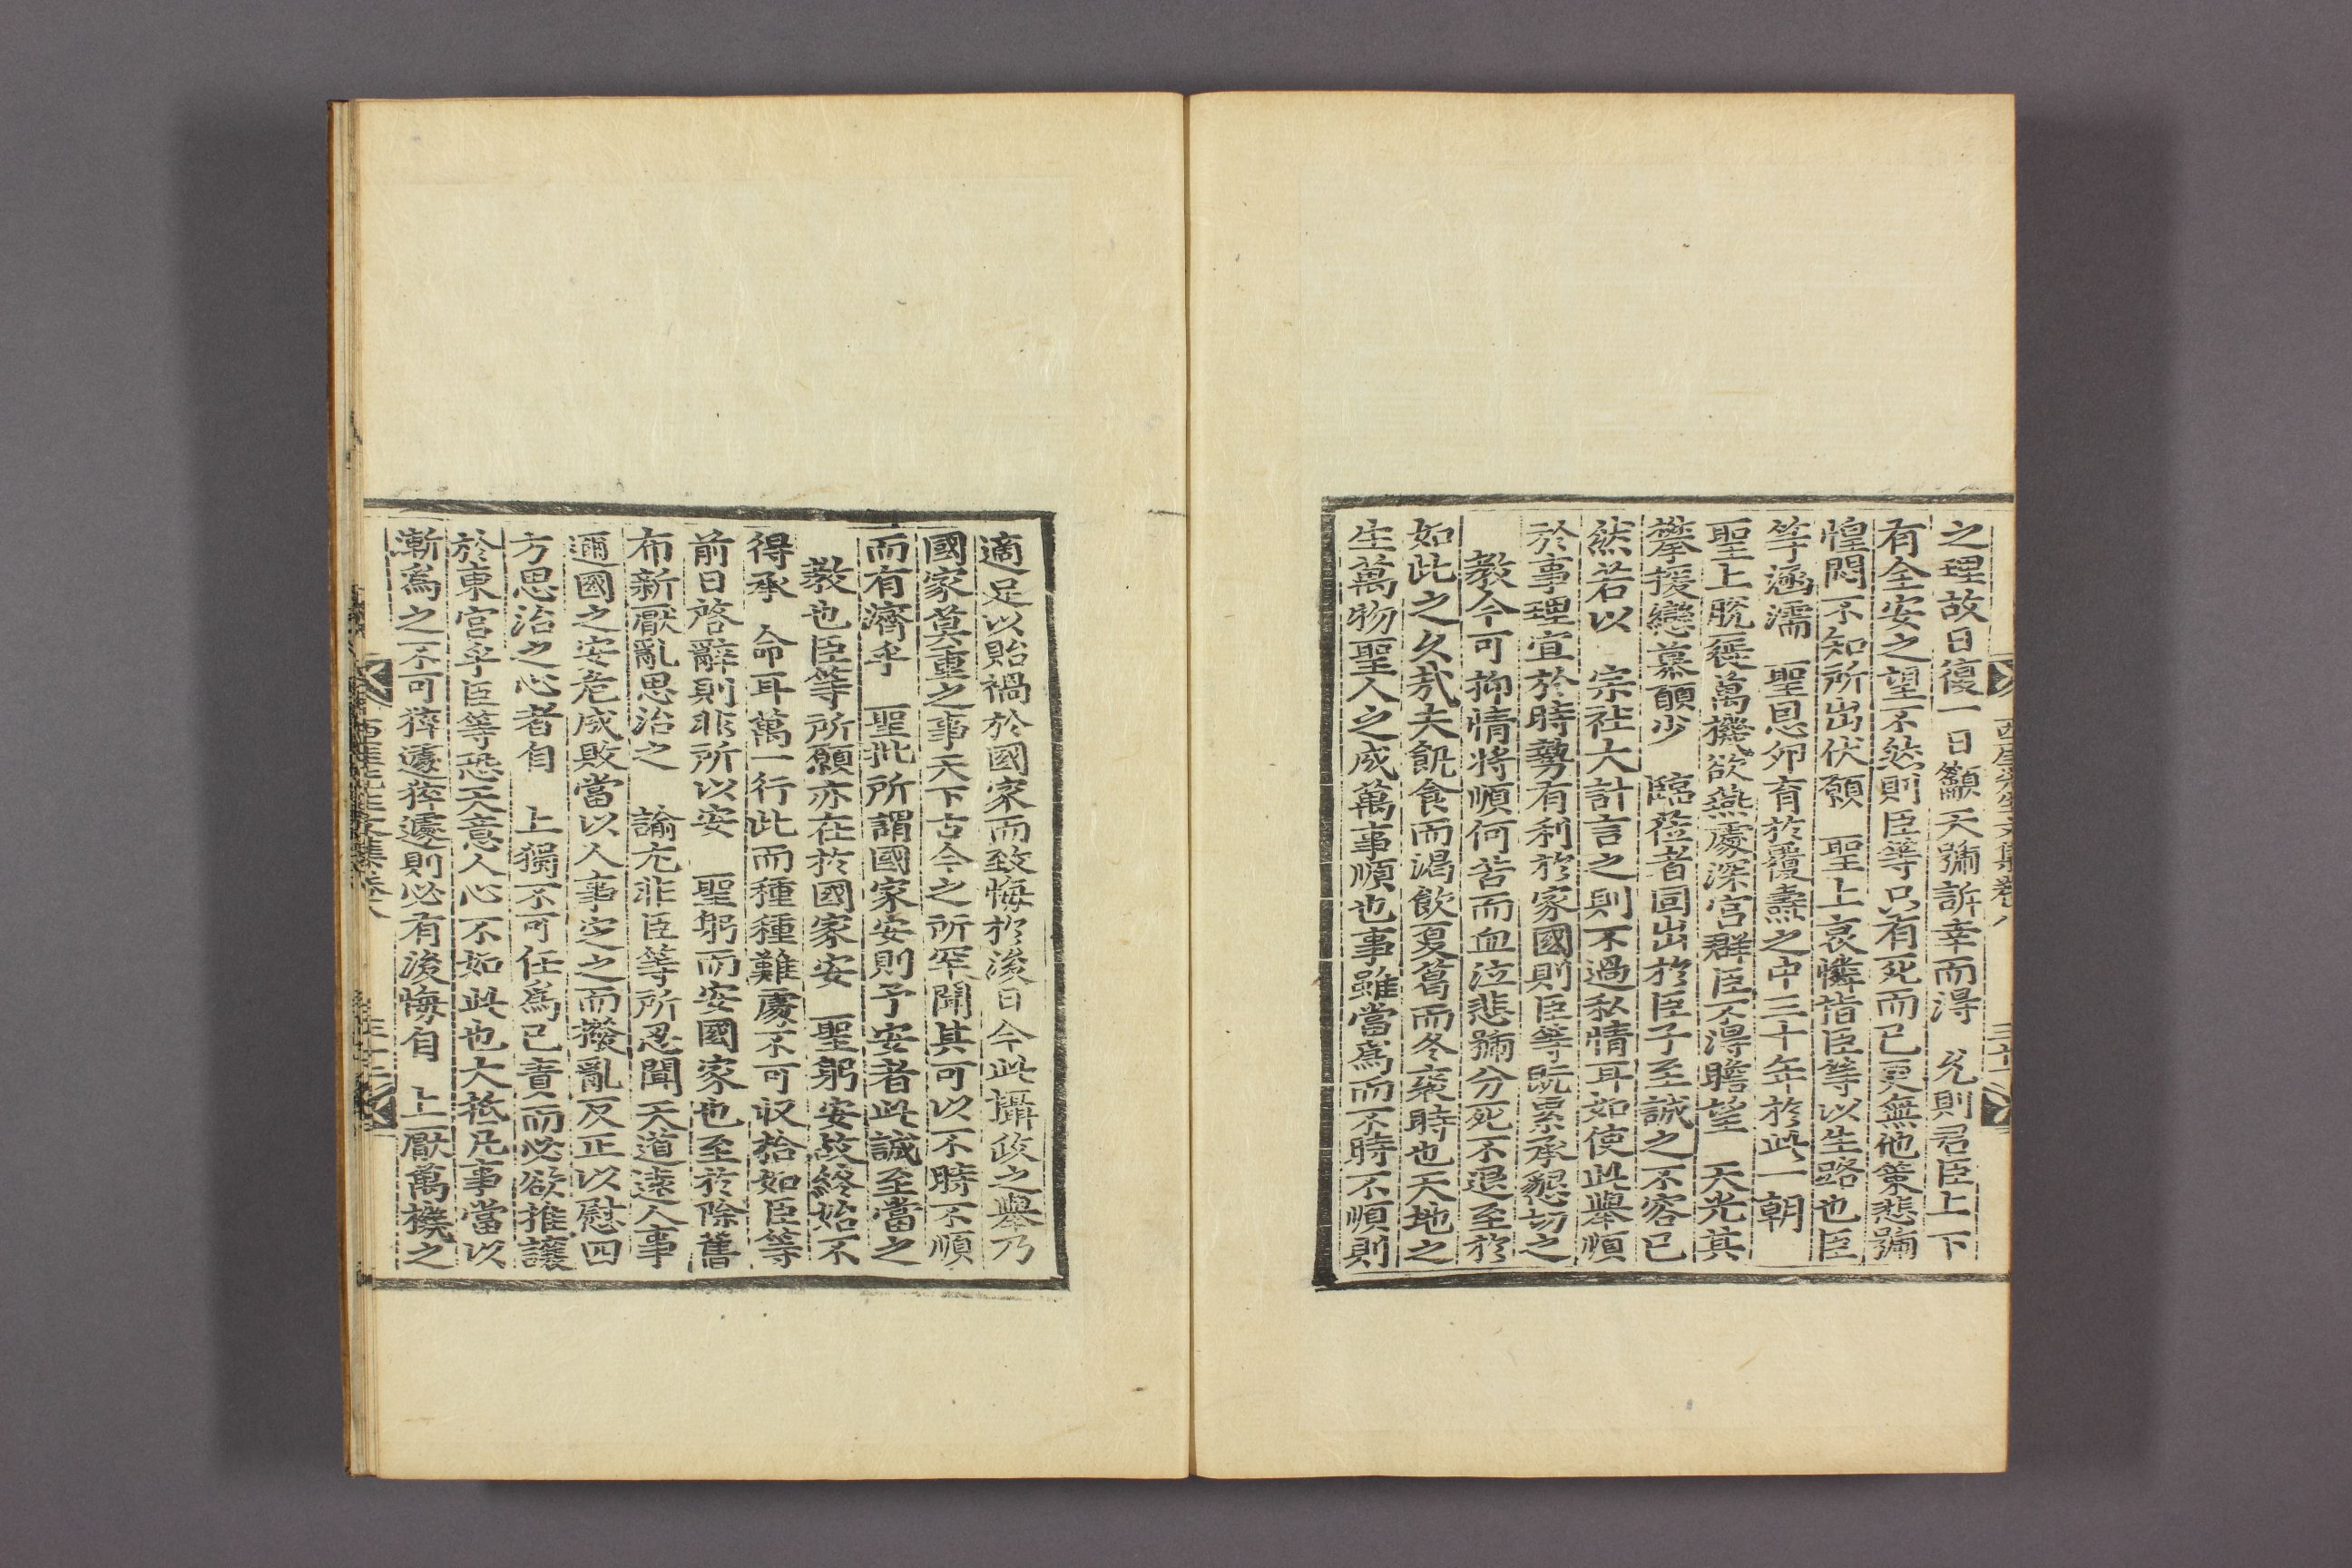 之理故日復一日籲天號訴幸而得 允則君臣上下
有全安之望不然則臣等只有死而已更無他策悲號
惶悶不知所出伏願 聖上哀憐指臣等以生路也臣
等涵濡 聖恩卵育於覆燾之中三十年於此一朝
聖上脫屣萬機欲燕處深宮群臣不得瞻望 天光其
攀援戀慕願少 臨莅者固出於臣子至誠之不容已
然若以 宗社大計言之則不過私情耳如使此擧順
於事理宜於時勢有利於家國則臣等旣累承懇切之
敎今可抑情將順何苦而血泣悲號分死不退至於
如此之久哉夫飢食而渴飮夏葛而冬裘時也天地之
生萬物聖人之成萬事順也事雖當爲而不時不順則
西厓先生文集卷八
適足以貽禍於國家而致悔於後日今此攝政之擧乃
國家莫重之事天下古今之所罕聞其可以不時不順
而有濟乎 聖批所謂國家安則予安者此誠至當之
敎也臣等所願亦在於國家安 聖躬安故終始不
得承 命耳萬一行此而種種難處不可収拾如臣等
前日啓辭則非所以安 聖躬而安國家也至於除舊
布新厭亂思治之 諭尤非臣等所忍聞天道遠人事
邇國之安危成敗當以人事定之而撥亂反正以慰四
方思治之心者自 上獨不可任爲己責而必欲推讓
於東宮乎臣等恐天意人心不如此也大抵凡事當以
漸爲之不可猝遽猝遽則必有後悔自 上厭萬機之
西厓先生文集卷八